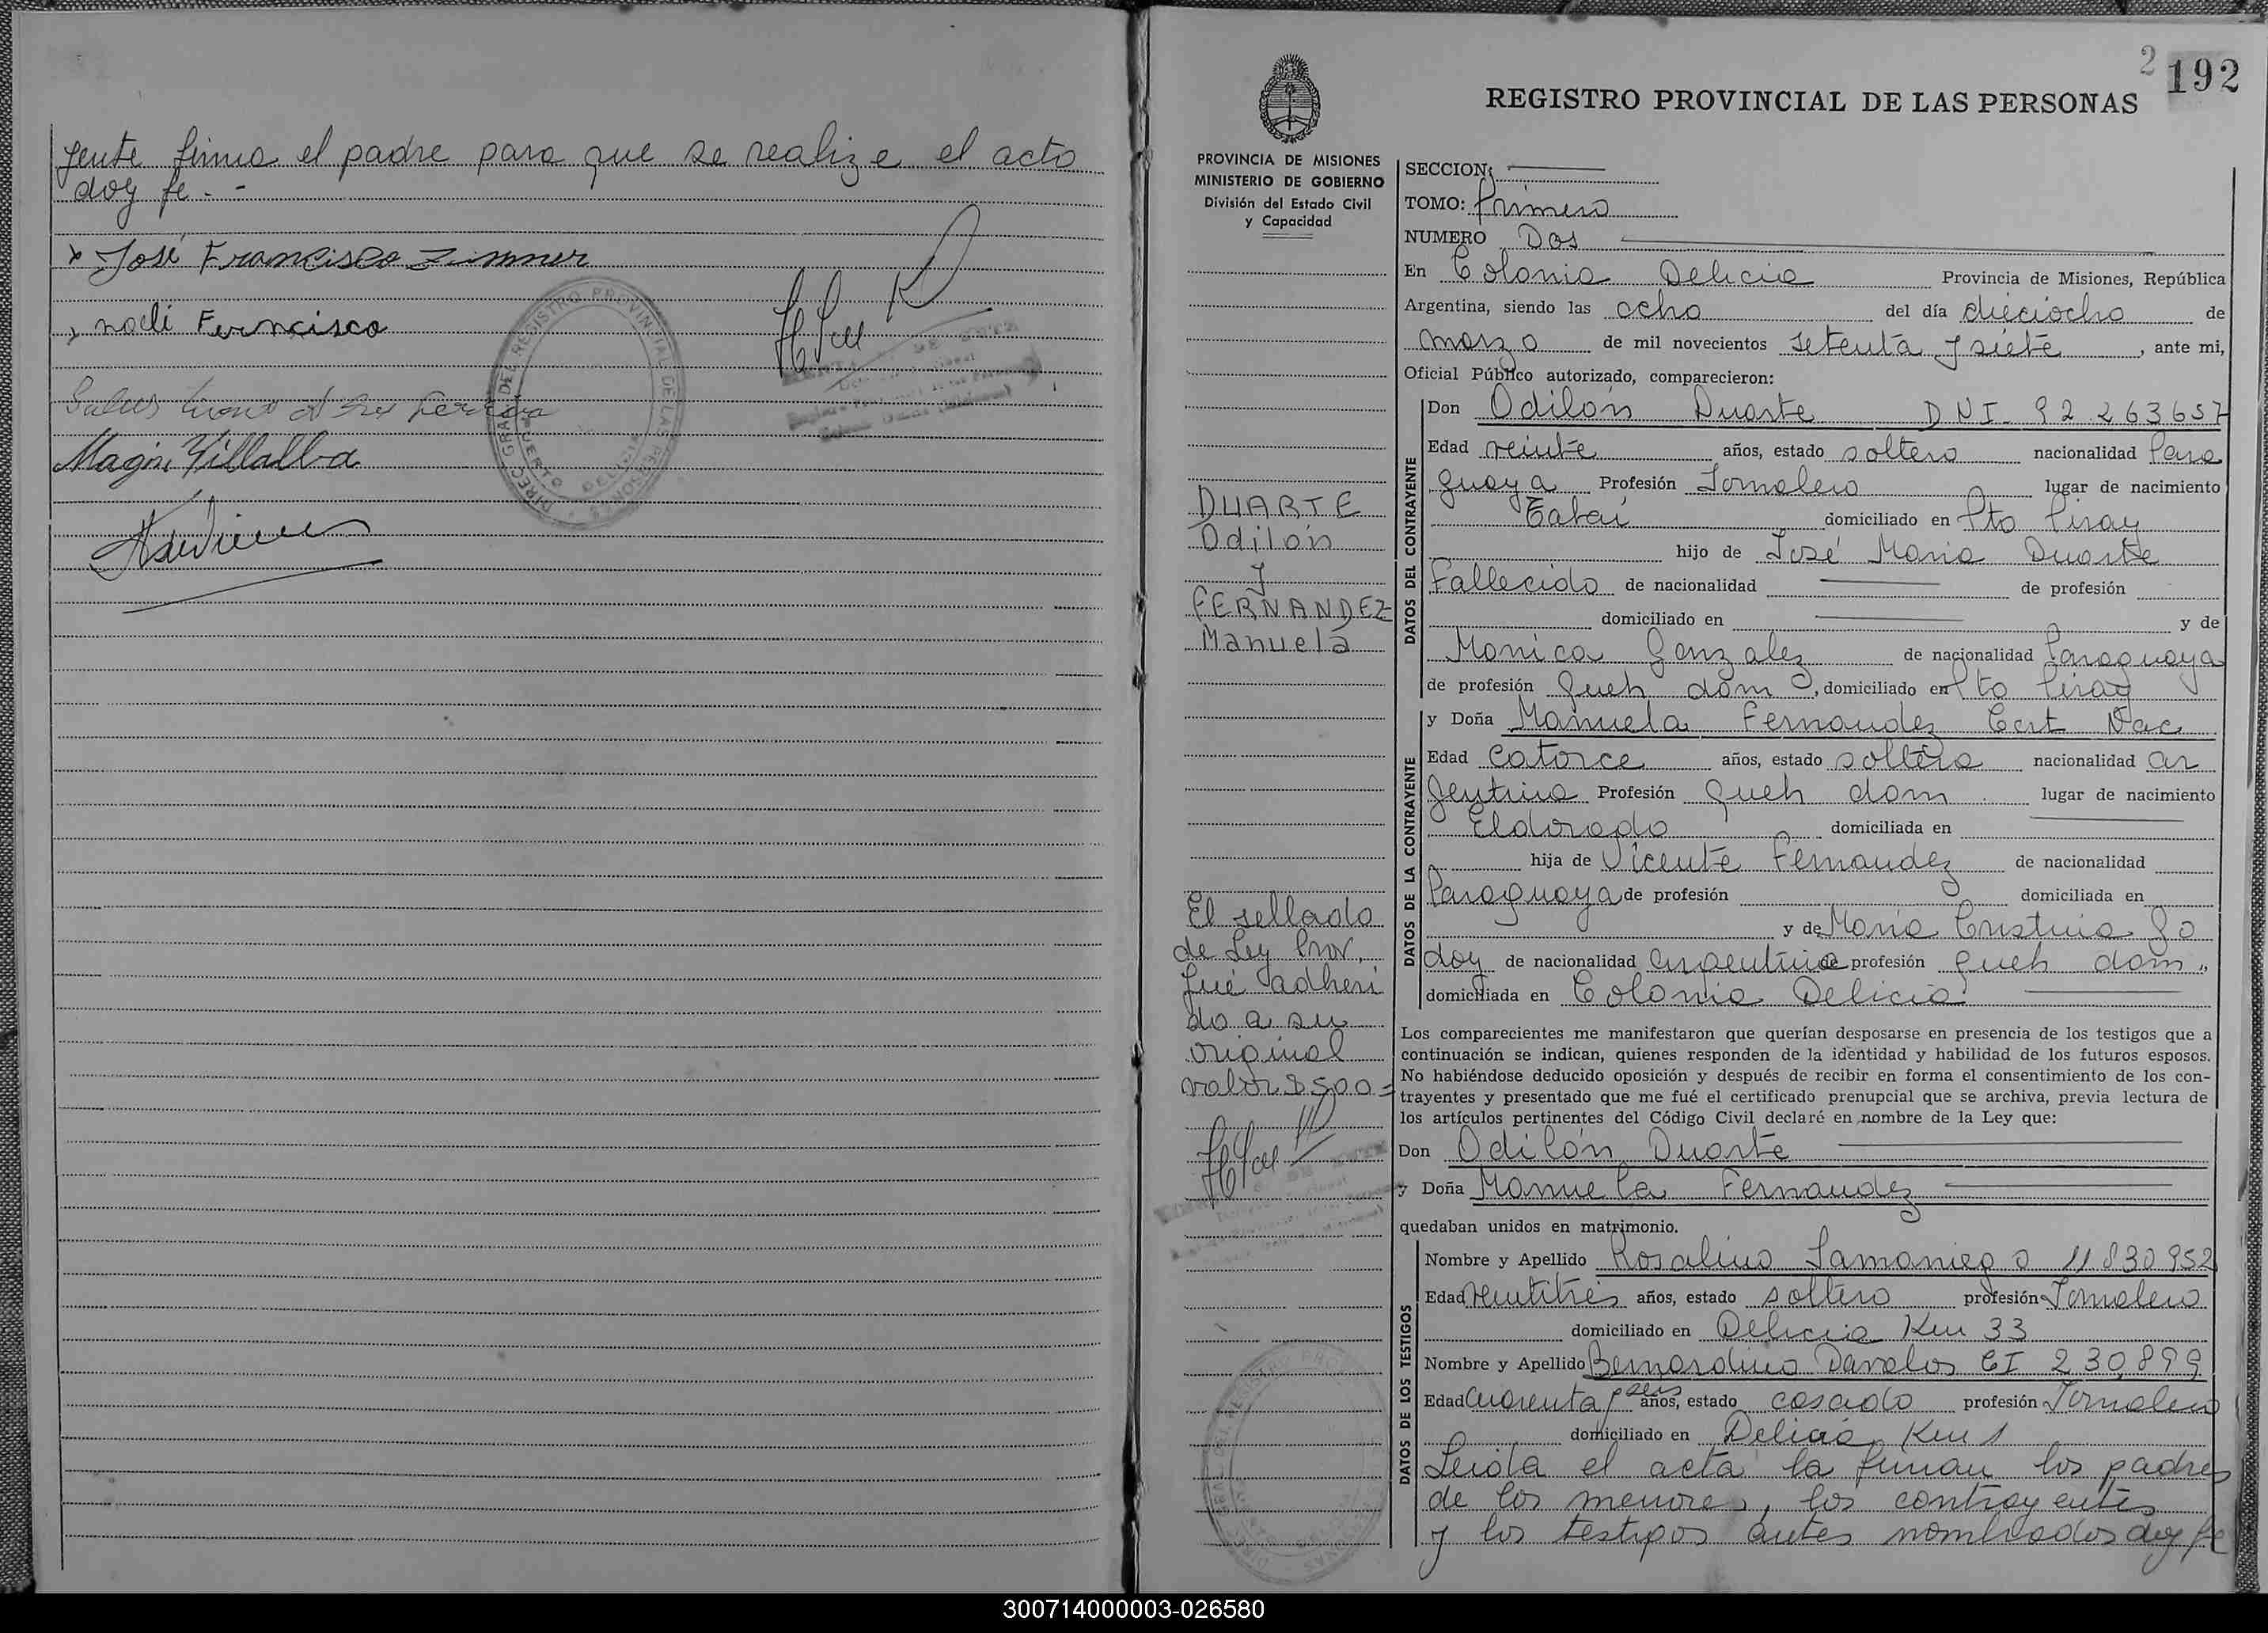 gente firma el padre para que se realize el acto
doy fe.-
José Francisco Zimmer
noeli Ferncisco
Magin Villalba
DIREC. GRAL. DEL REGISTRO PROVINCIAL DE LAS PERSONAS
PUERTO DELICIA
2 192
REGISTRO PROVINCIAL DE LAS PERSONAS
PROVINCIA DE MISIONES
MINISTERIO DE GOBIERNO
División del Estado Civil
y Capacidad
DUARTE
Odilón
y
FERNANDEZ
Manuela
El sellado
de Ley Prov.
fué adheri
do a su
original
valor $500=
SECCION:
TOMO: Primero
NUMERO Dos
En Colonia Delicia Provincia de Misiones, República
Argentina, siendo las ocho del día dieciocho de
marzo de mil novecientos setenta y siete, ante mi,
Oficial Público autorizado, comparecieron:
DATOS DEL CONTRAYENTE
Don Odilón Duarte DNI. 92.263657
Edad veinte años, estado soltero nacionalidad Para
guaya Profesión Jornalero lugar de nacimiento
Tabaí domiciliado en Pto Piray
hijo de José Maria Duarte
Fallecido de nacionalidad de profesión
domiciliado en y de
Monica Gonzalez de nacionalidad Paraguaya
de profesión Queh dom, domiciliado en Pto Piray
DATOS DE LA CONTRAYENTE
y Doña Manuela Fernandez Cert Nac
Edad catorce años, estado soltera nacionalidad ar
gentina Profesión queh dom. lugar de nacimiento
Eldorado domiciliada en
hija de Vicente Fernandez de nacionalidad
Paraguaya de profesión domiciliada en
y de Maria Cristina Go
doy de nacionalidad argentina de profesión queh dom.,
domiciliada en Colonia Delicia
Los comparecientes me manifestaron que querían desposarse en presencia de los testigos que a
continuación se indican, quienes responden de la identidad y habilidad de los futuros esposos.
No habiéndose deducido oposición y después de recibir en forma el consentimiento de los con-
trayentes y presentado que me fué el certificado prenupcial que se archiva, previa lectura de
los artículos pertinentes del Código Civil declaré en nombre de la Ley que:
Don Odilón Duarte
y Doña Manuela Fernandez
quedaban unidos en matrimonio.
DATOS DE LOS TESTIGOS
Nombre y Apellido Rosalino Samaniego 11830952
Edad veintitrés años, estado soltero profesión Jornalero
domiciliado en Delicia Km 33
Nombre y Apellido Bernardino Davalos CI 230,899
Edad cuarenta y seis años, estado casado profesión Jornalero
domiciliado en Delicia Km 1
Leida el acta la firman los padres
de los menores, los contrayentes
y los testigos antes nombrados doy fe
300714000003-026580